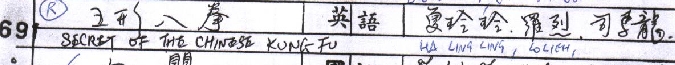 Ⓡ 五形八拳 英語 夏玲玲, 羅烈, 司馬龍.
69
SECRET OF THE CHINESE KUNG FU HA LING LING, LO LIEH,